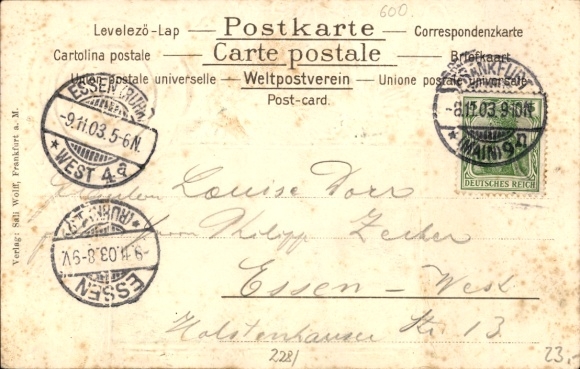 600
Levelezö-Lap — Postkarte — Correspondenzkarte
Cartolina postale — Carte postale — Briefkaart
Union postale universelle — Weltpostverein — Unione postale universale
Post-card.
ESSEN (RUHR)
-9.11.03.5-6N.
* WEST 4a
FRANKFURT
-8.11.03.9-10N.
* (MAIN) 9
DEUTSCHES REICH
Louise Dorr
Philipp Zeiher
Essen - West
Holstenhauser Str. 13
ESSEN (RUHR)
-9.11.03.8-9V.
Verlag: Sali Wolff, Frankfurt a. M.
2281
23.-